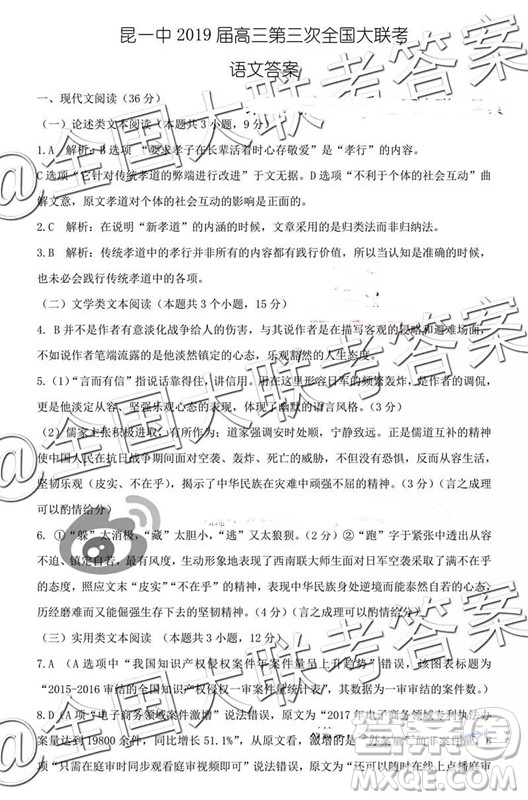 昆一中 2019 届高三第三次全国大联考
语文答案
一、现代文阅读（36 分）
（一）论述类文本阅读（本题共 3 小题，9 分）
1.A 解析：B 选项 “要求孝子在长辈活着时心存敬爱”是“孝行”的内容。
C 选项“它针对传统孝道的弊端进行了矫正”错误。D 选项“不利于个体的社会互动”曲
解文意，原文为孝道对个体的社会互动的影响是正面的。
2.C 解析：在说明“新孝道”的内涵的时候，文章采用的是归类法而非归纳法。
3.B 解析：传统孝道中的孝行并非所有的内容都和当今的社会现实相符，当今的社会
也未必会践行传统孝道中的各项。
（二）文学类文本阅读（本题共 3 个小题，15 分）
4. B 并不是作者有意淡化战争给人的伤害，与其说作者是在描写客观的侵略和避难场面，
不如说作者笔端流露的是他淡然镇定的心态，乐观豁然的人生态度。
5.（1）“言而有信”指说话靠得住，讲信用。用在到这里形容日军的频繁轰炸，是作者的调侃，
更是他淡定从容、坚强乐观心态的表现，体现了幽默的语言风格。（3 分）
（2）儒家主张积极进取，有所作为；道家强调安时处顺，宁静致远。正是儒道互补的精神
使中国人民在抗日战争期间面对空袭、轰炸、死亡、灾难等，表现出了从容、淡定的生活态度，
坚韧乐观（皮实、不在乎），揭示了中华民族在灾难中顽强不屈的精神。（3 分）（言之成理
可以酌情给分）
6. ①“躲”太消极，“藏”太胆小，“逃”又太狼狈。（2 分）②“跑”字于紧张中透露出从容
不迫、镇定自若的心态，生动形象地表现了西南联大师生面对日军空袭采取了最具体可行的行
动形态，照应文末“皮实”“不在乎”的精神，表现中华民族身处逆境而能泰然自若的心态，
历经磨难而万古长存的精神。（4 分）（言之成理可以酌情给分）
（三）实用类文本阅读 （本题共 3 小题，12 分）
7.A （A 选项中“我国知识产权侵权案件年案件量呈上升趋势”错误，该图表标题为
“2015-2016 审结的全国知识产权侵权一审案件量统计表”，数据为一审审结的案件数。）
8.D（A 项“电子商务领域案件激增”说法错误，原文为“2017 年电子商务领域专利执法办
案量达到 19800 余件，同比增长 51.1%”，激增的是
项“只能在庭审时同步观看庭审视频即可”说法错误，原文为“在线上点播庭审
@全国大联考答案
@全国大联考答案
@全国大联考答案